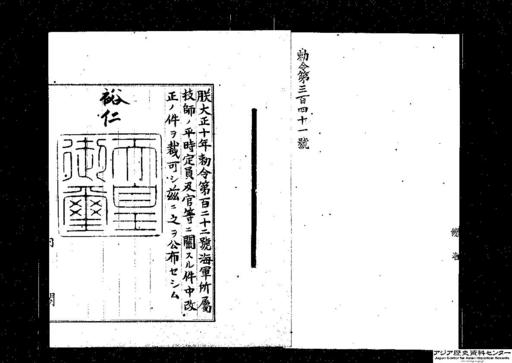 勅令第三百四十一號
朕大正十年勅令第百二十二號海軍所屬
技師ノ平時定員及官等ニ關スル件中改
正ノ件ヲ裁可シ茲ニ之ヲ公布セシム
裕仁
天皇
御璽
内閣
アジア歴史資料センター
Japan Center for Asian Historical Records